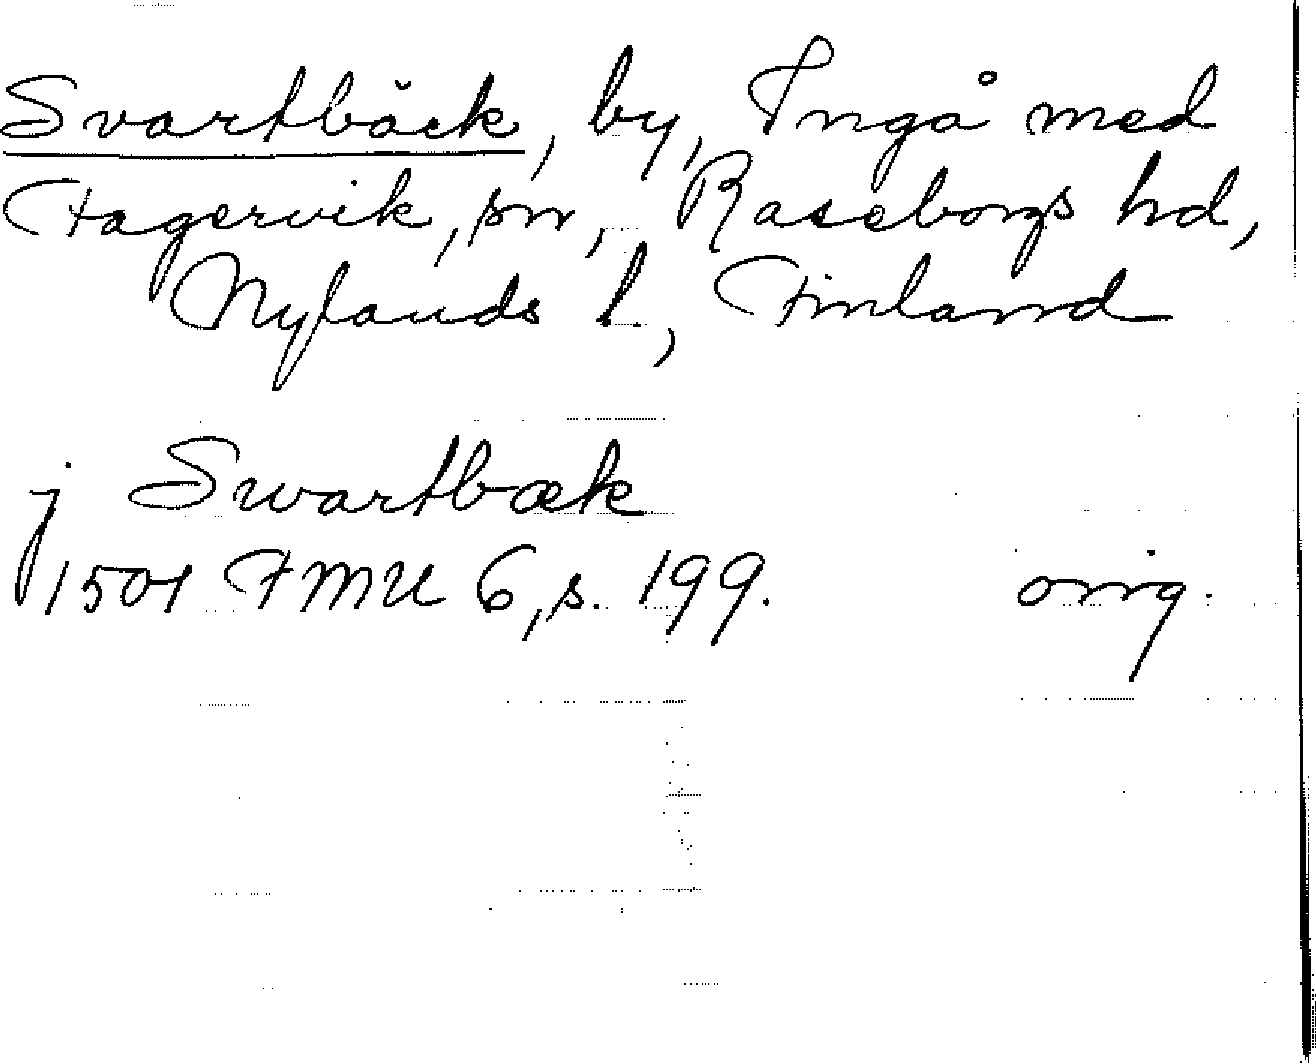 Svartbäck, by, Ingå med
Fagervik, sn, Raseborgs hd,
Nylands l., Finland
j Swartbæk
1501 FMU 6, s. 199. orig.